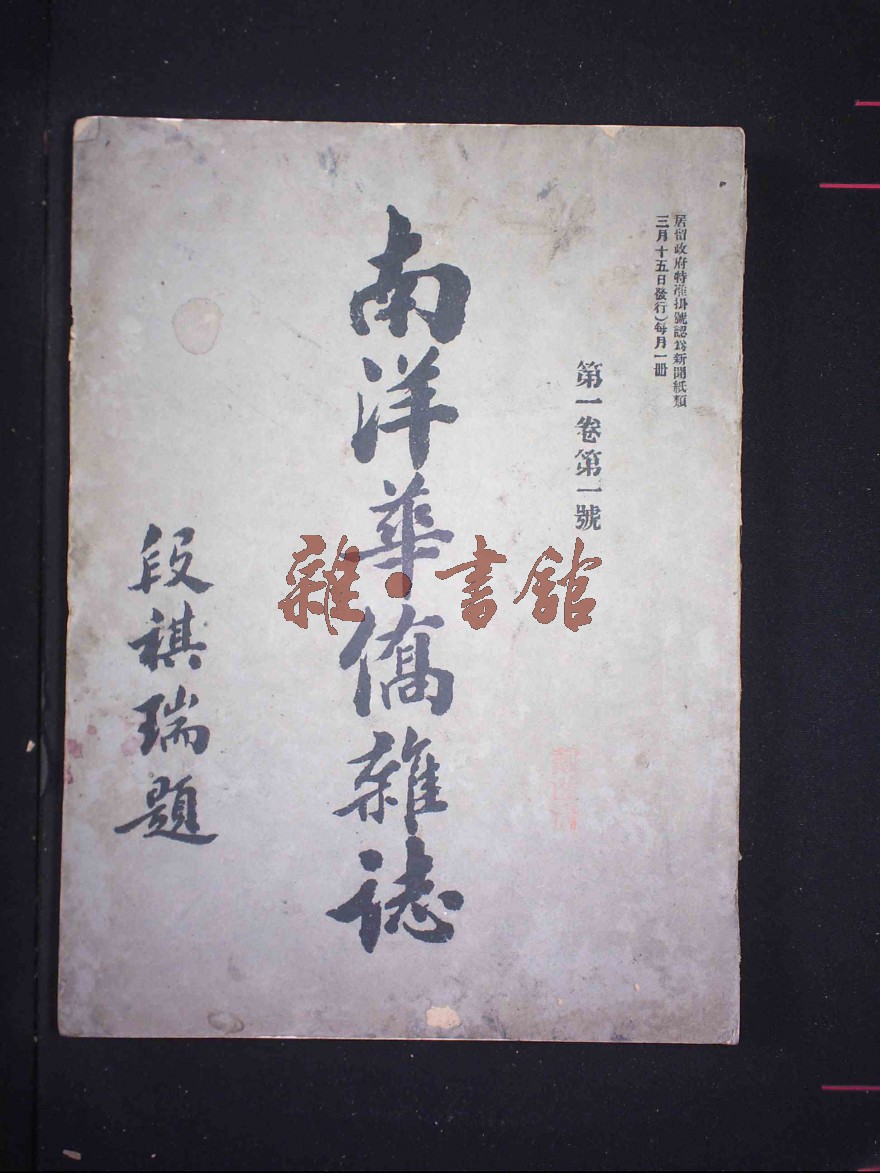 居留政府特准掛號認爲新聞紙類
三月十五日發行）每月一冊
第一卷第一號
南洋華僑雜誌
段祺瑞題
雜·書舘